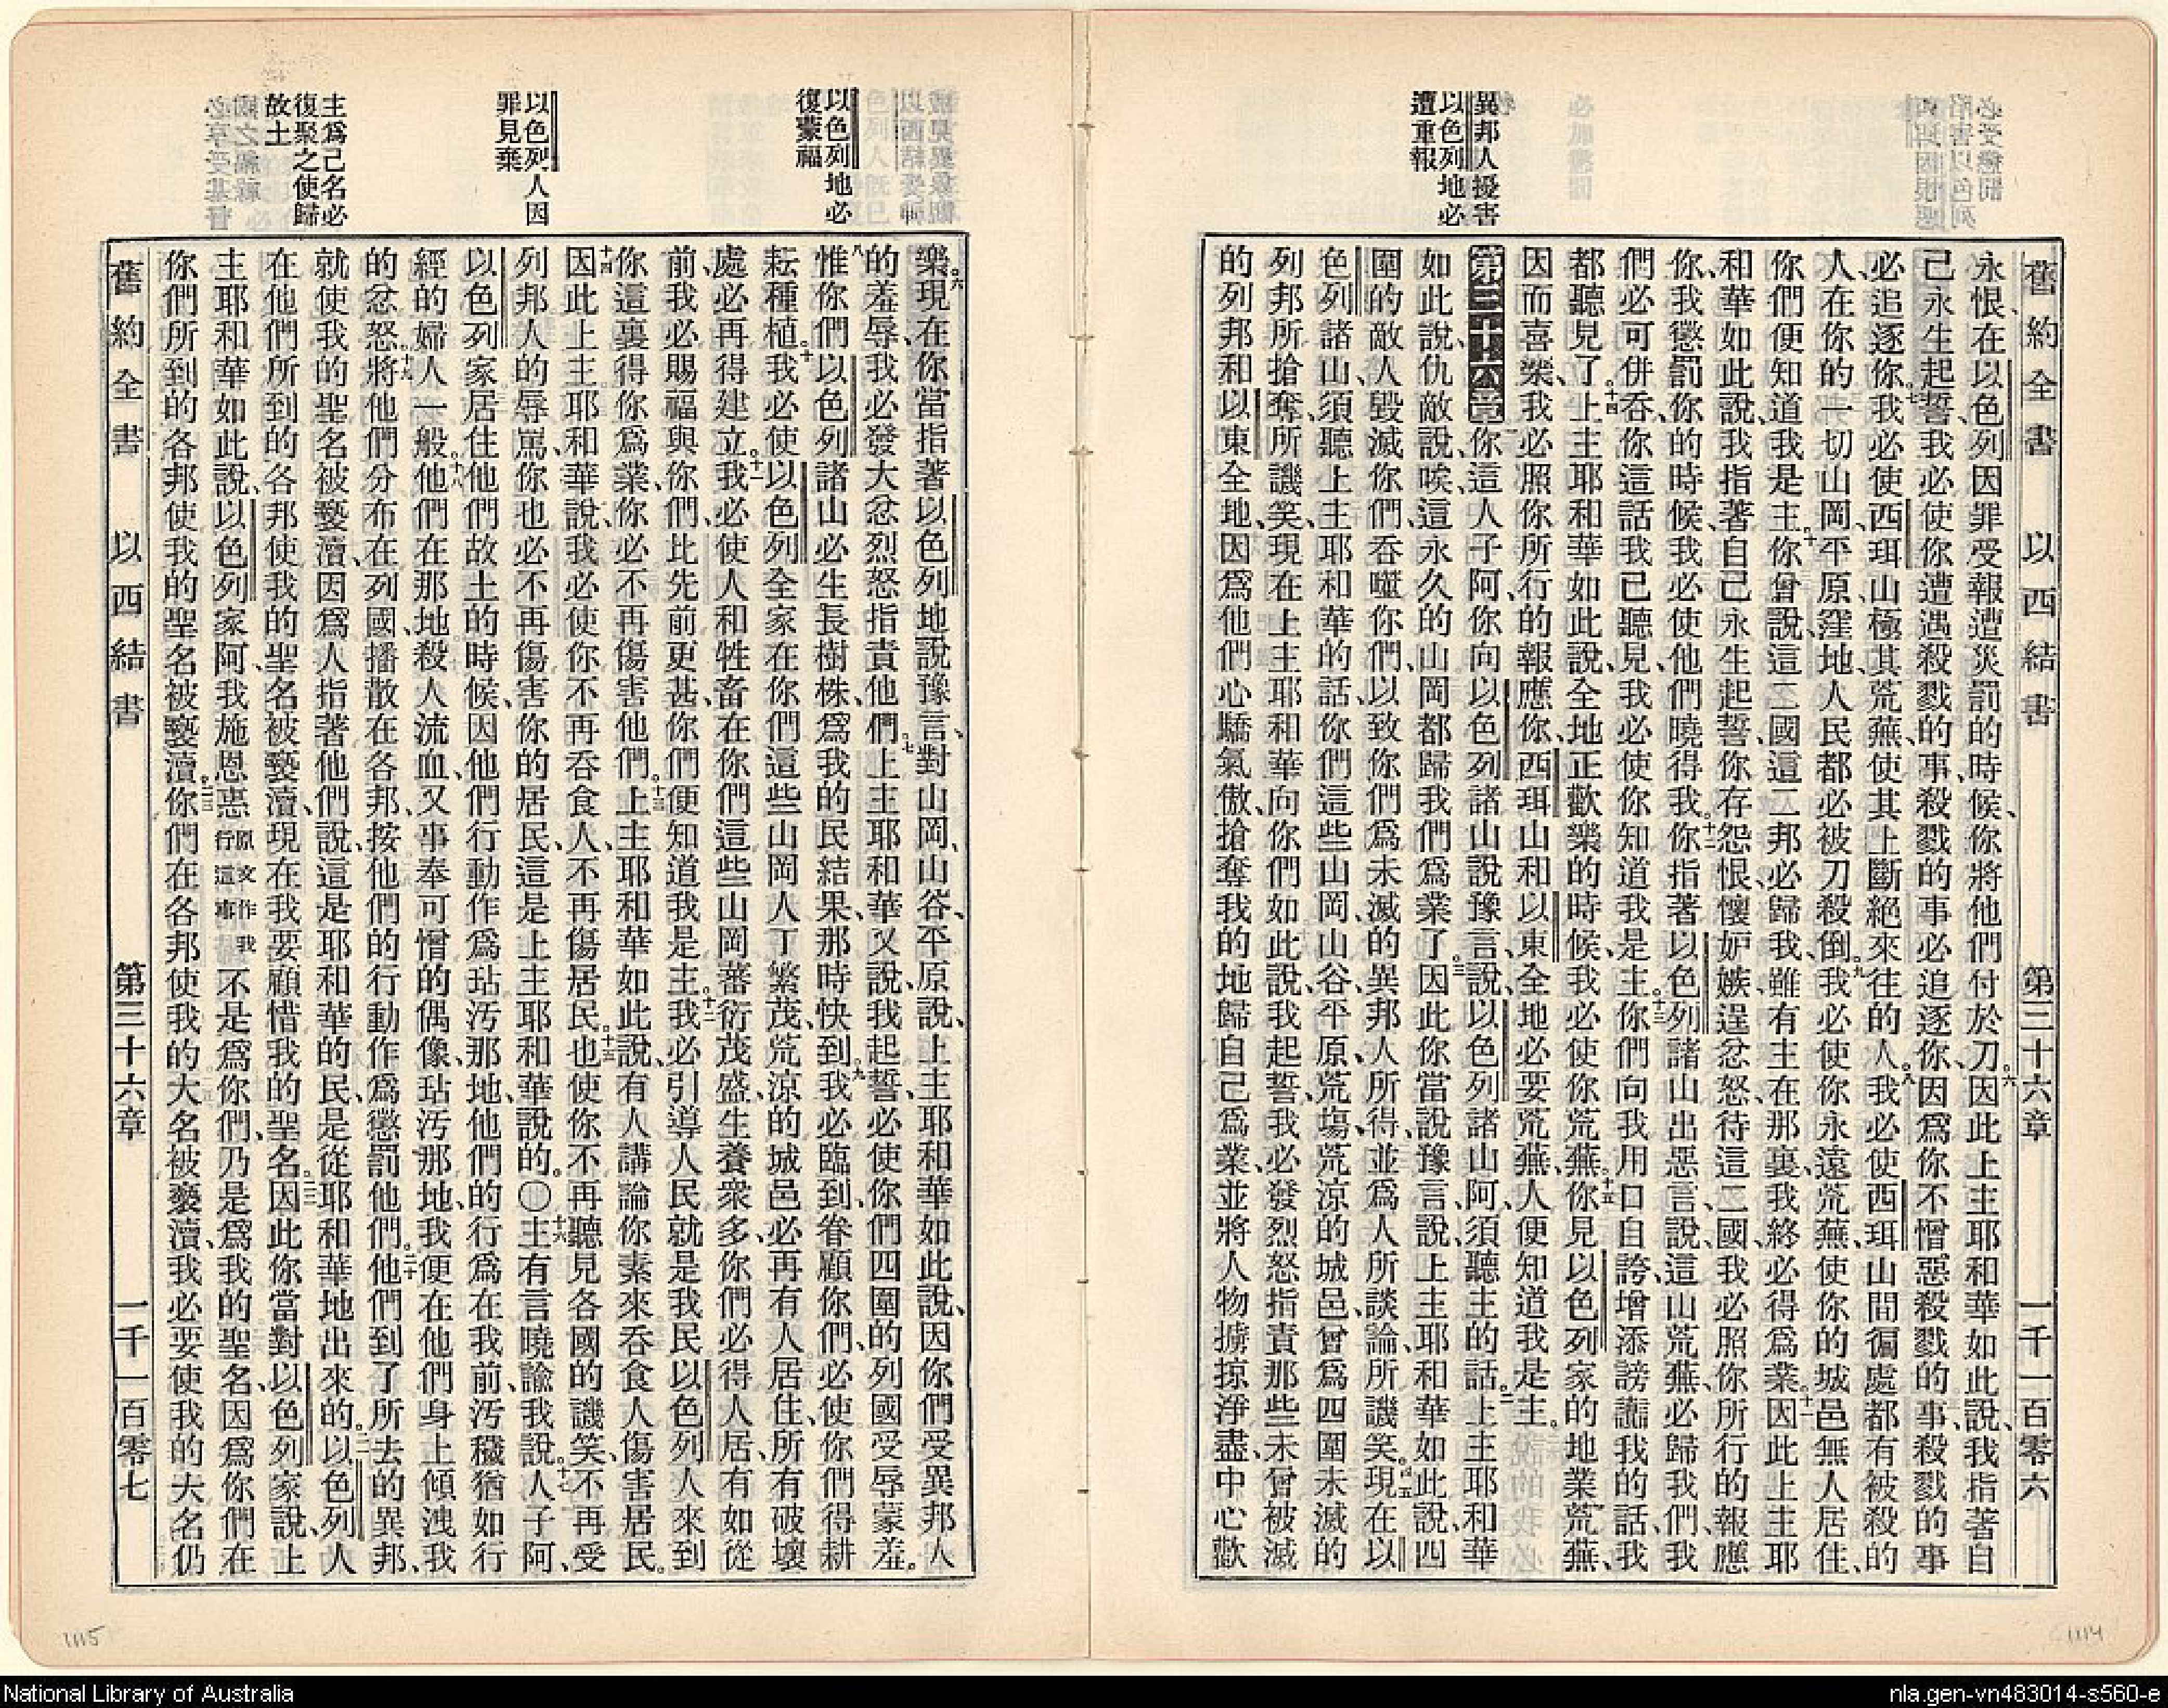 舊約全書 以西結書 第三十六章 一千一百零六
異邦人擾害
以色列地必
遭重報
永恨、在以色列因罪受報遭災罰的時候、你將他們付於刀。六因此上主耶和華如此說、我指著自
己永生起誓、我必使你遭遇殺戮的事、殺戮的事必追逐你、因爲你不憎惡殺戮的事、殺戮的事
必追逐你。七我必使西珥山極其荒蕪、使其上斷絕來往的人。八我必使西珥山間徧處都有被殺的
人、在你的一切山岡、平原、窪地、人民都必被刀殺倒。九我必使你永遠荒蕪、使你的城邑無人居住、
你們便知道我是主。十你曾說、這二國這二邦必歸我、雖有主在那裏、我終必得爲業。十一因此上主耶
和華如此說、我指著自己永生起誓、你存怨恨、懷妒嫉、逞忿怒、待這二國、我必照你所行的報應
你、我懲罰你的時候、我必使他們曉得我。十二你指著以色列諸山出惡言說、這山荒蕪、必歸我們、我
們必可併吞、你這話我已聽見、我必使你知道我是主。十三你們向我用口自誇、增添謗讟我的話、我
都聽見了。十四上主耶和華如此說、全地正歡樂的時候、我必使你荒蕪。十五你見以色列家的地業荒蕪、
因而喜樂、我必照你所行的報應你、西珥山和以東全地必要荒蕪、人便知道我是主。
第三十六章 一你這人子阿、你向以色列諸山說豫言、說、以色列諸山阿、須聽主的話。二上主耶和華
如此說、仇敵說、唉、這永久的山岡都歸我們爲業了。三因此你當說豫言說、上主耶和華如此說、四
圍的敵人毀滅你們、吞噬你們、以致你們爲未滅的異邦人所得、並爲人所談論、所譏笑。四五現在以
色列諸山、須聽上主耶和華的話、你們這些山岡、山谷、平原、荒塲、荒涼的城邑、曾爲四圍未滅的
列邦所搶奪、所譏笑、現在上主耶和華向你們如此說、我起誓、我必發烈怒指責那些未曾被滅
的列邦和以東全地、因爲他們心驕氣傲、搶奪我的地歸自己爲業、並將人物擄掠淨盡、中心歡
以色列地必
復蒙福
以色列人因
罪見棄
主爲己名必
復聚之使歸
故土
樂。六現在你當指著以色列地說豫言、對山岡、山谷、平原說、上主耶和華如此說、因你們受異邦人
的羞辱、我必發大忿烈怒指責他們。七上主耶和華又說、我起誓、必使你們四圍的列國受辱蒙羞。
八惟你們以色列諸山必生長樹株、爲我的民結果、那時快到。九我必臨到、眷顧你們、必使你們得耕
耘種植。十我必使以色列全家在你們這些山岡人丁繁茂、荒涼的城邑必再有人居住、所有破壞
處必再得建立。十一我必使人和牲畜在你們這些山岡蕃衍茂盛、生養衆多、你們必得人居、有如從
前、我必賜福與你們、比先前更甚、你們便知道我是主。十二我必引導人民、就是我民以色列人來到
你這裏、得你爲業、你必不再傷害他們。十三上主耶和華如此說、有人講論你素來吞食人、傷害居民。
十四因此上主耶和華說、我必使你不再吞食人、不再傷居民。十五也使你不再聽見各國的譏笑、不再受
列邦人的辱罵、你也必不再傷害你的居民、這是上主耶和華說的。〇十六主有言曉諭我說。十七人子阿、
以色列家居住他們故土的時候、因他們行動作爲玷汚那地、他們的行爲在我前、汚穢猶如行
經的婦人一般。十八他們在那地殺人流血、又事奉可憎的偶像、玷汚那地、我便在他們身上傾洩我
的忿怒。十九將他們分布在列國、播散在各邦、按他們的行動作爲懲罰他們。二十他們到了所去的異邦、
就使我的聖名被褻瀆、因爲人指著他們說、這是耶和華的民、是從耶和華地出來的。二一以色列人
在他們所到的各邦使我的聖名被褻瀆、現在我要顧惜我的聖名。二二因此你當對以色列家說、上
主耶和華如此說、以色列家阿、我施恩惠原文作我行這事不是爲你們、乃是爲我的聖名、因爲你們在
你們所到的各邦使我的聖名被褻瀆。二三你們在各邦使我的大名被褻瀆、我必要使我的大名仍
舊約全書 以西結書 第三十六章 一千一百零七
1115
1114
National Library of Australia
nla.gen-vn483014-s560-e